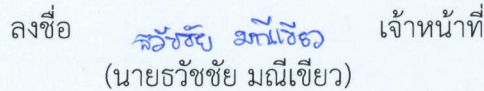 ลงชื่อ ธวัชชัย มณีเขียว เจ้าหน้าที่
(นายธวัชชัย มณีเขียว)